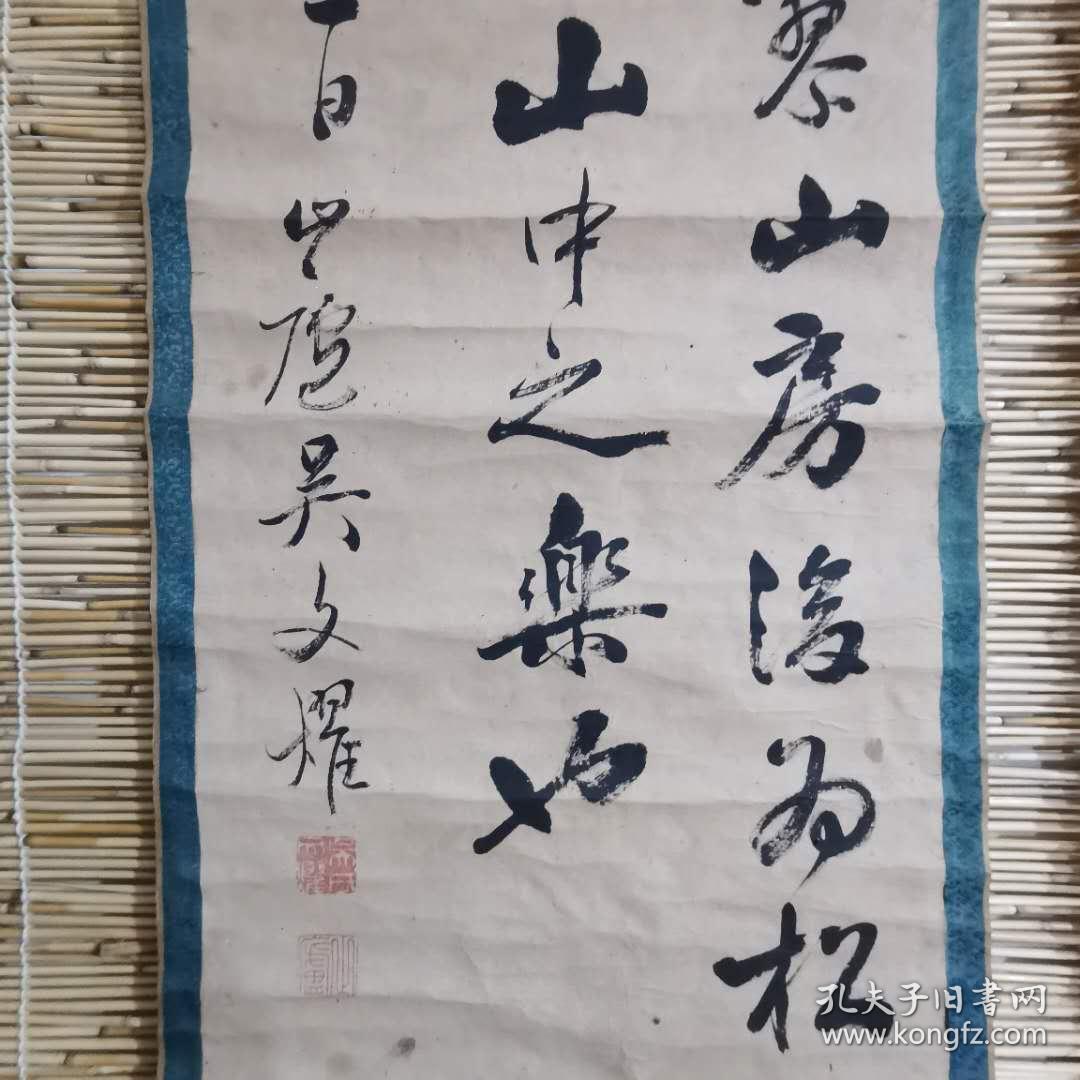 山房後為松
山中之樂也
百
吳文耀
孔夫子旧书网
www.kongfz.com